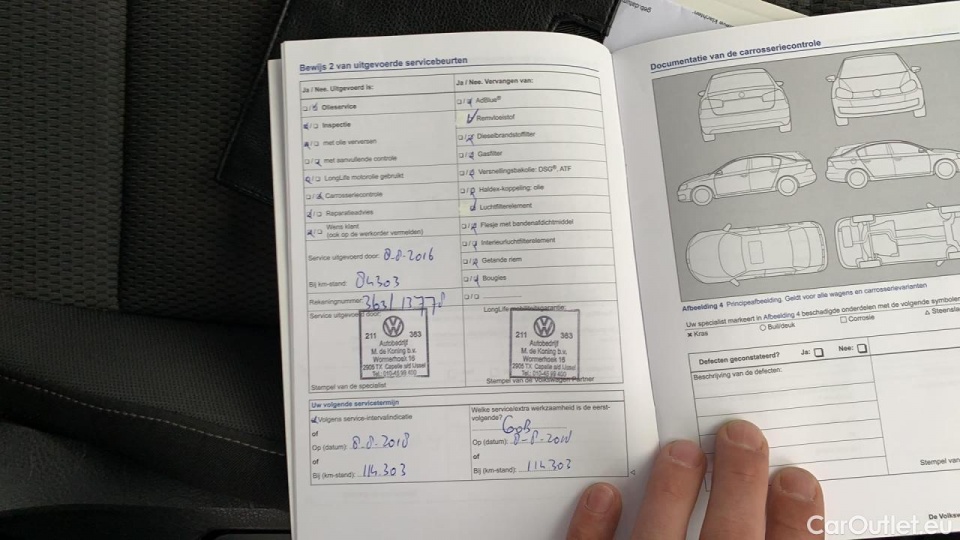 Bewijs 2 van uitgevoerde servicebeurten
Ja / Nee. Uitgevoerd is:
Olieservice
Inspectie
met olie verversen
met aanvullende controle
LongLife motorolie gebruikt
Carrosseriecontrole
Reparatieadvies
Wens klant
(ook op de werkorder vermelden)
Service uitgevoerd door: 8-8-2016
Bij km-stand: 84303
Rekeningnummer:
Service uitgevoerd door:
211 363
Autobedrijf
M. de Koning b.v.
Wormerhoek 16
2905 TX Capelle a/d IJssel
Stempel van de specialist
Ja / Nee. Vervangen van:
AdBlue®
Remvloeistof
Dieselbrandstoffilter
Gasfilter
Versnellingsbakolie: DSG®, ATF
Haldex-koppeling: olie
Luchtfilterelement
Flesje met bandenafdichtmiddel
Interieurluchtfilterelement
Getande riem
Bougies
211 363
Autobedrijf
M. de Koning b.v.
Wormerhoek 16
2905 TX Capelle a/d IJssel
Stempel van de Volkswagen Partner
Uw volgende servicetermijn
Volgens service-intervalindicatie
of
Op (datum): 8-8-2018
of
Bij (km-stand): 114.303
Welke service/extra werkzaamheid is de eerst-
volgende?
Op (datum):
of
Bij (km-stand): 114303
geb.datum
Documentatie van de carrosseriecontrole
Afbeelding 4 Principeafbeelding. Geldt voor alle wagens en carrosserievarianten
Uw specialist markeert in Afbeelding 4 beschadigde onderdelen met de volgende symbolen
Kras
Buil/deuk
Corrosie
Defecten geconstateerd? Ja: Nee:
Beschrijving van de defecten:
Stempel van
De Volksw
CarOutlet.eu